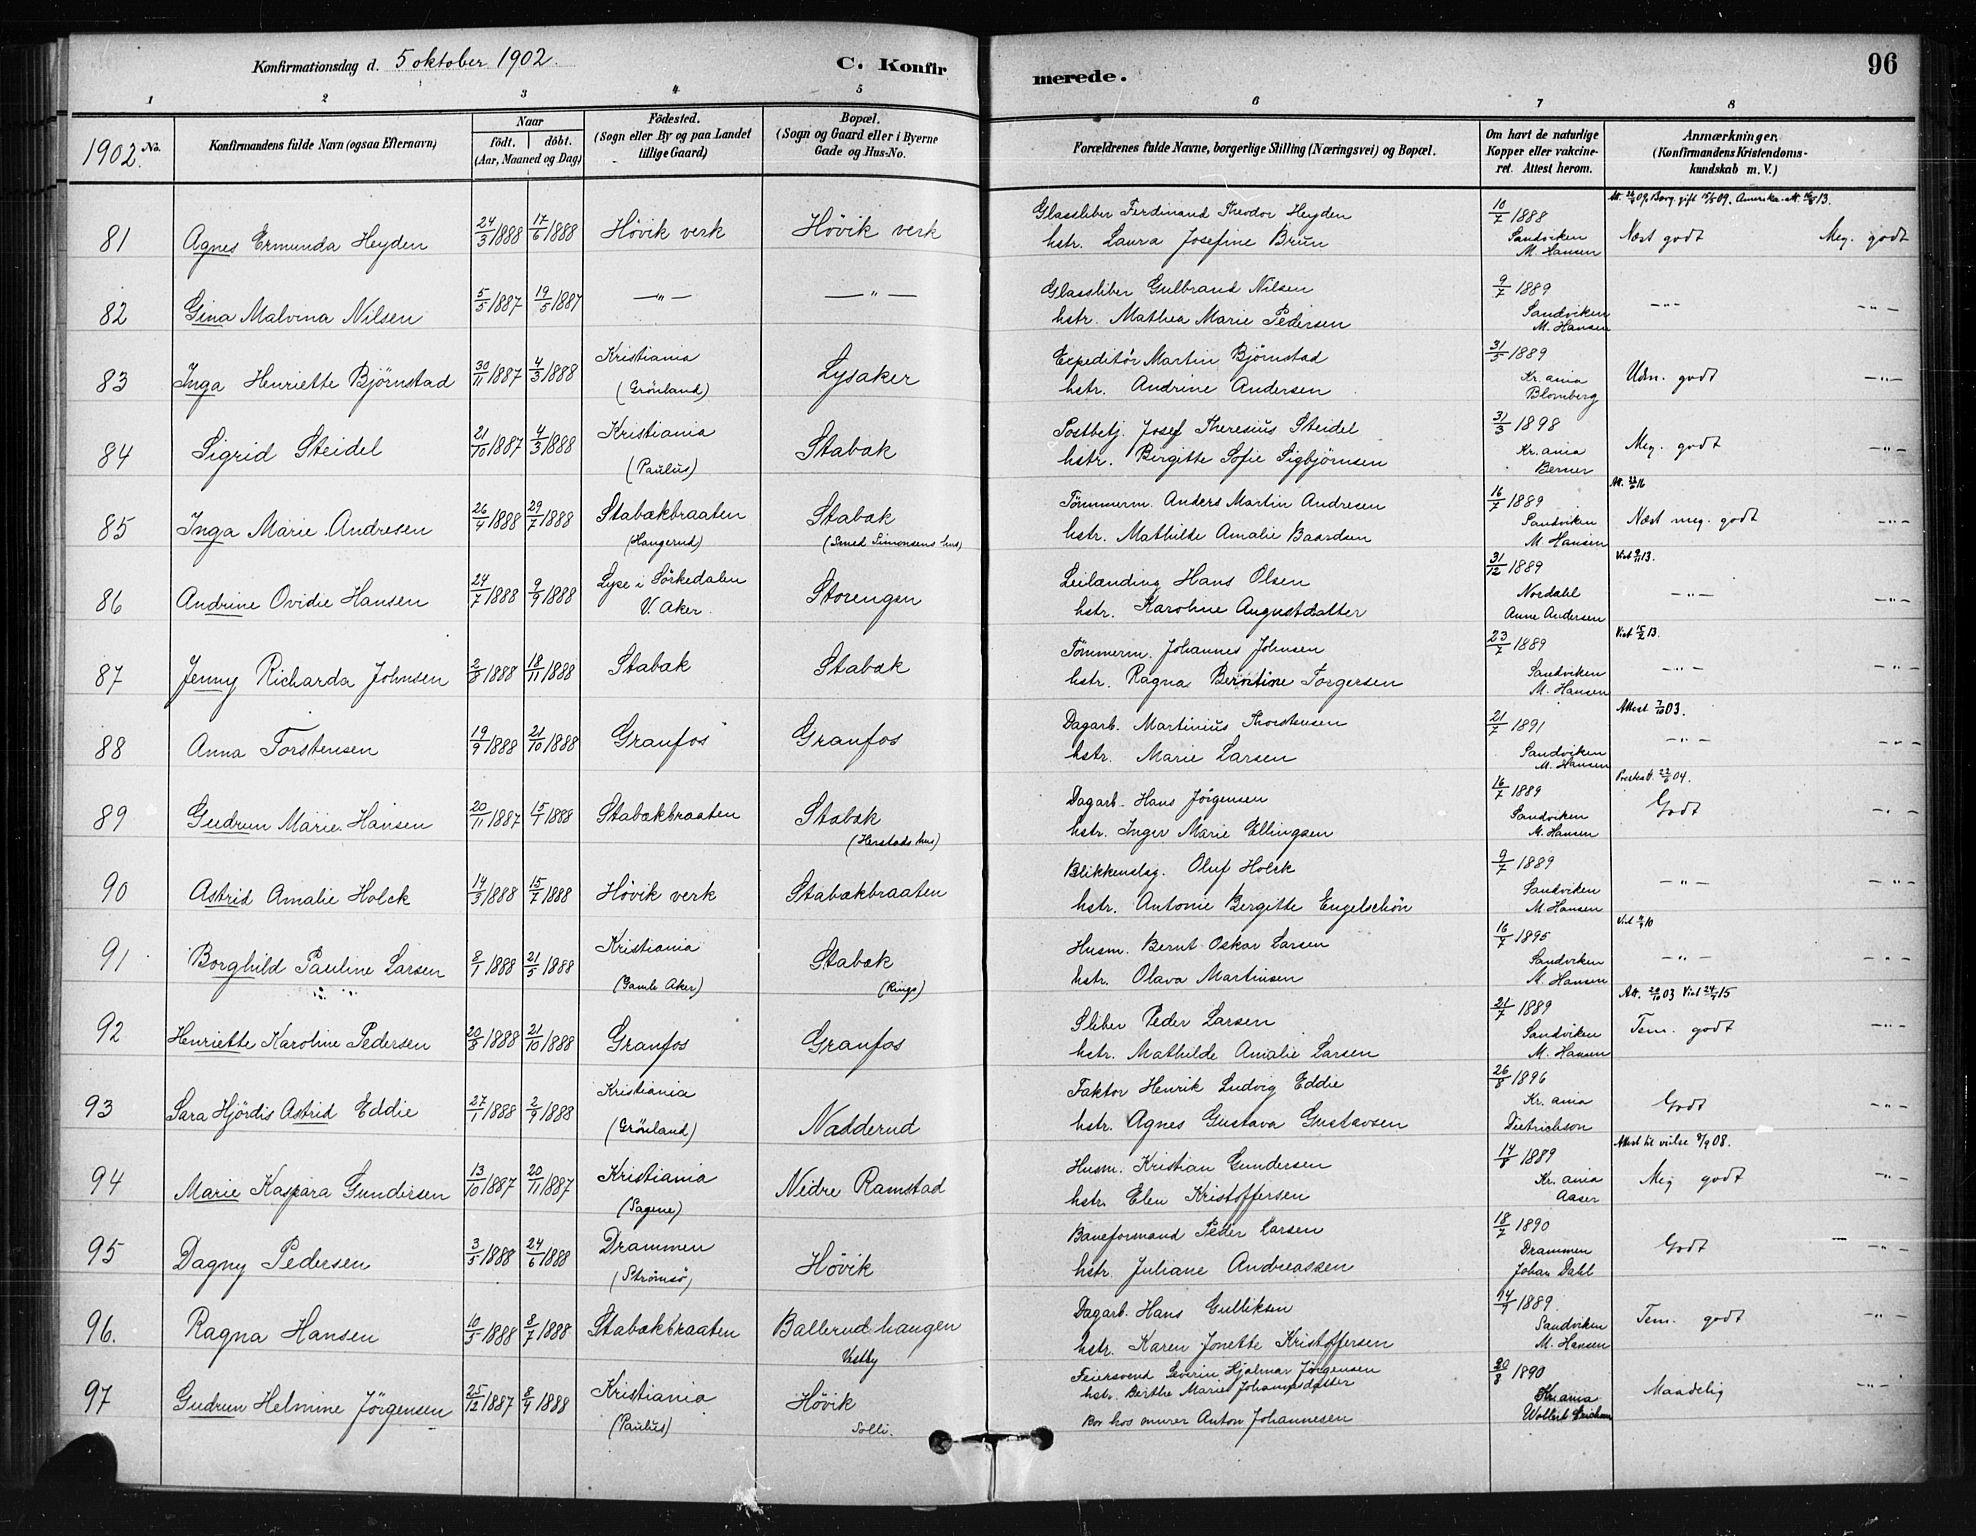 Konfirmationsdag d. 5 oktober 1902.
C. Konfir
merede.
96
1 2 3 4 5 6 7 8
1902. No.
Konfirmandens fulde Navn (ogsaa Efternavn)
Naar
födt. döbt.
(Aar, Maaned og Dag)
Födested.
(Sogn eller By og paa Landet
tillige Gaard)
Bopæl.
(Sogn og Gaard eller i Byerne
Gade og Hus-No.
Forældrenes fulde Navne, borgerlige Stilling (Næringsvei) og Bopæl.
Om havt de naturlige
Kopper eller vakcine-
ret. Attest herom.
Anmærkninger.
(Konfirmandens Kristendoms-
kundskab m. V.)
81 Agnes Ermunda Heyden 24/3 1888 17/6 1888 Høvik verk Høvik verk
Glassliber Ferdinand Theodor Heyden
hstr. Laura Josefine Brun
10/7 1888
Sandviken
M. Hansen
Næst godt Meg. godt
82 Gina Malvina Nilsen 5/5 1887 19/5 1887 —"— —"—
Glassliber Gulbrand Nilsen
hstr. Mathea Marie Pedersen
9/7 1889
Sandviken
M. Hansen
—"— —"—
83 Inga Henriette Bjørnstad 30/11 1887 4/3 1888 Kristiania
(Grönland)
Lysaker
Expeditör Martin Bjørnstad
hstr. Andrine Andersen
31/5 1889
Kr. ania
Blomberg
Udm. godt —"—
84 Sigrid Steidel 21/10 1887 4/3 1888 Kristiania
(Paulus)
Stabæk
Postbetj. Josef Theresius Steidel
hstr. Bergitte Sofie Sigbjørnsen
31/3 1898
Kr. ania
Berner
Meg. godt —"—
85 Inga Marie Andresen 26/4 1888 29/7 1888 Stabækbraaten
(Haugerud)
Stabæk
(Smed Simonsens hus)
Tömmerm. Anders Martin Andresen
hstr. Mathilde Amalie Baardsen
16/7 1889
Sandviken
M. Hansen
Næst meg. godt —"—
86 Andrine Ovidie Hansen 24/7 1888 9/9 1888 Lyse i Sörkedalen
V. Aker.
Storengen
Leilænding Hans Olsen
hstr. Karoline Augustdatter
31/12 1889
Nordahl
Anne Andersen
—"— —"—
87 Jenny Richarda Johnsen 1888 18/11 1888 Stabæk Stabæk
Tömmerm. Johannes Johnsen
hstr. Ragna Berntine Torgersen
23/7 1889
Sandviken
M. Hansen
—"— —"—
88 Anna Torstensen 19/9 1888 21/10 1888 Granfos Granfos
Dagarb. Martinius Thorstensen
hstr. Marie Larsen
21/7 1891
Sandviken
M. Hansen
Attest 7/10 03.
—"— —"—
89 Gudrun Marie Hansen 20/11 1887 15/1 1888 Stabækbraaten Stabæk
(Herstads hus)
Dagarb. Hans Jörgensen
hstr. Inger Marie Ellingsen
16/7 1889
Sandviken
M. Hansen
Godt —"—
90 Astrid Amalie Holck 14/3 1888 15/7 1888 Høvik verk Stabækbraaten
Blikkenslag. Oluf Holck
hstr. Antonie Bergitte Engelschön
9/7 1889
Sandviken
M. Hansen
—"— —"—
91 Borghild Pauline Larsen 8/1 1888 21/5 1888 Kristiania
(Gamle Aker)
Stabæk
(Rings)
Husm. Bernt Oskar Larsen
hstr. Olava Martinsen
16/7 1895
Sandviken
M. Hansen
—"— —"—
92 Henriette Karoline Pedersen 20/8 1888 21/10 1888 Granfos Granfos
Sliber Peder Larsen
hstr. Mathilde Amalie Larsen
21/7 1889
Sandviken
M. Hansen
Tem. godt —"—
93 Sara Hjördis Astrid Eddie 27/1 1888 2/9 1888 Kristiania
(Grönland)
Nadderud
Faktor Henrik Ludvig Eddie
hstr. Agnes Gustava Gustavsen
26/8 1896
Kr. ania
Dietrichson
Godt —"—
94 Marie Kaspara Gundersen 13/10 1887 20/11 1887 Kristiania
(Sagene)
Nedre Ramstad
Husm. Kristian Gundersen
hstr. Elen Kristoffersen
14/8 1889
Kr. ania
Aaser
Attest til vielse 9/9 08.
Meg godt —"—
95 Dagny Pedersen 3/5 1888 24/6 1888 Drammen
(Strømsö)
Høvik
Baneformand Peder Larsen
hstr. Juliane Andreassen
18/7 1890
Drammen
Johan Dahl
Godt —"—
96. Ragna Hansen 10/5 1888 8/7 1888 Stabækbraaten Ballerud haugen
Vestby
Dagarb. Hans Gulliksen
hstr. Karen Jonette Kristoffersen
1889.
Sandviken
M. Hansen
Tem. godt —"—
97 Gudrun Helmine Jörgensen 25/12 1887 8/4 1888 Kristiania
(Paulus)
Høvik
Solli.
Feiersvend Severin Hjalmar Jörgensen
hstr. Berthe Marie Johannesdatter
Bor hos murer Anton Johannesen
1890
Kr. ania
Maadelig —"—